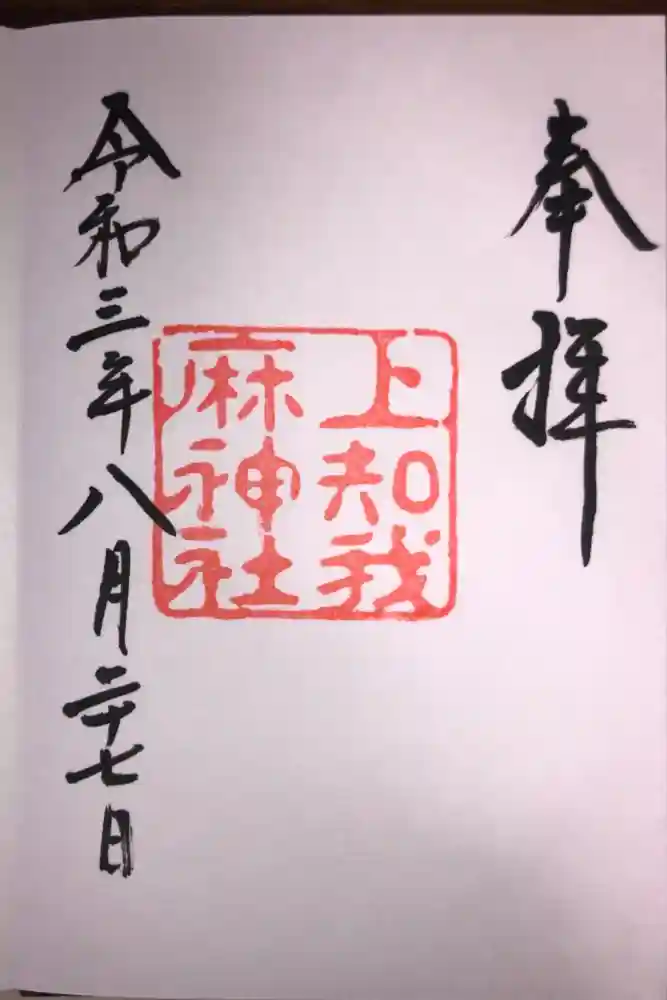 奉拝
上知我
麻神社
令和三年八月二十七日